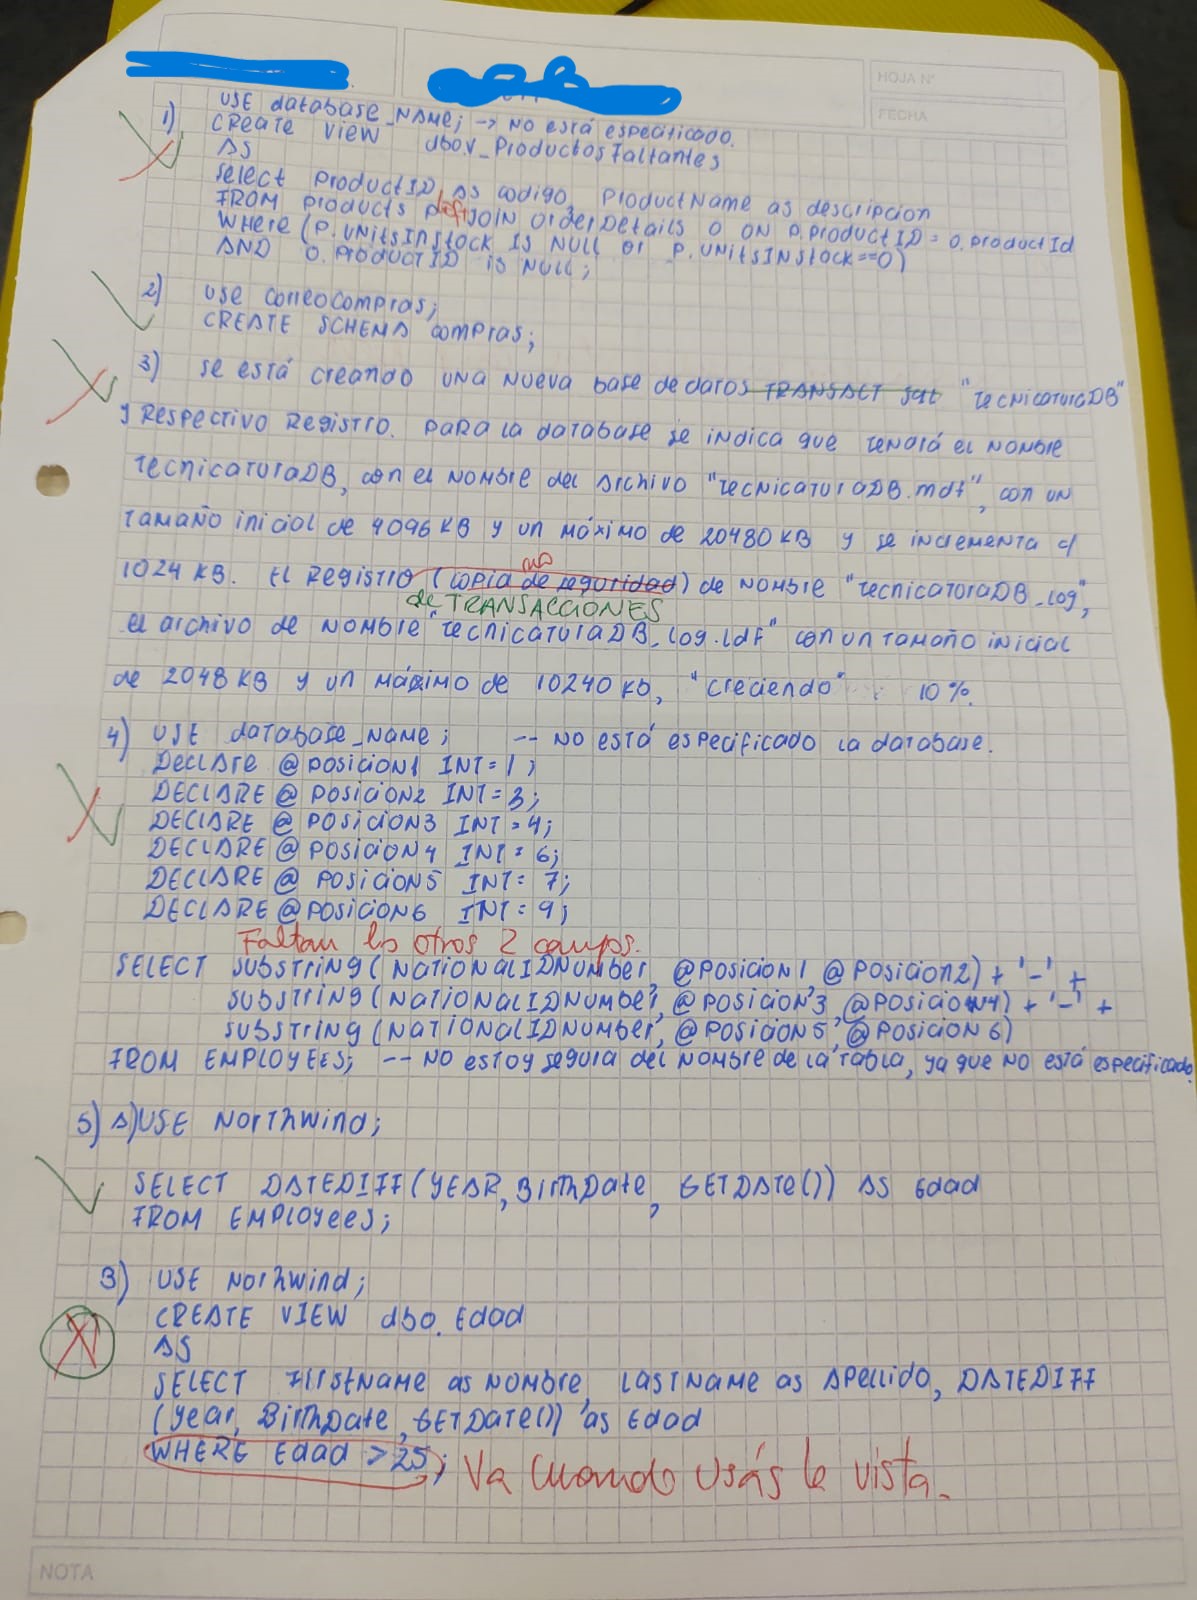 HOJA N°
FECHA
1) USE database_NAME; -> NO está especificado.
Create view dbo.v_ProductosFaltantes
AS
select ProductID as codigo, ProductName as descripcion
FROM products p left JOIN OrderDetails O ON p.productID = o.productId
Where (P.UNitsInstock IS NULL or P.UNitsINstock==0)
AND O.PRODUCTID is NULL;
2) use correoCompras;
CREATE SCHEMA compras;
3) se está creando una nueva base de datos TRANSACT sql "TecnicaturaDB"
y Respectivo Registro. Para la database se indica que tendrá el nombre
TecnicaturaDB, con el nombre del archivo "TecnicaturaDB.mdf", con un
Tamaño inicial de 4096 KB y un máximo de 20480 KB y se incrementa c/
no
1024 KB. El Registro (copia de seguridad) de nombre "TecnicaturaDB_log",
de TRANSACCIONES
el archivo de nombre "TecnicaturaDB_log.ldf" con un tamaño inicial
de 2048 KB y un máximo de 10240 KB, "creciendo" 10%.
4) USE database_name; -- NO está especificado la database.
Declare @posicion1 INT=1;
DECLARE @posicion2 INT=3;
DECLARE @posicion3 INT=4;
DECLARE @posicion4 INT=6;
DECLARE @posicion5 INT=7;
DECLARE @posicion6 INT=9;
Faltan los otros 2 campos.
SELECT SUBSTRING(NATIONALIDNUMBER, @posicion1 @posicion2) + '-' +
substring(NATIONALIDNUMBER, @posicion3, @posicion4) + '-' +
substring(NATIONALIDNUMBER, @posicion5, @posicion6)
FROM EMPLOYEES; -- NO estoy segura del nombre de la tabla, ya que no está especificado.
5) A) USE Northwind;
SELECT DATEDIFF(YEAR, BirthDate, GETDATE()) AS Edad
FROM EMPloyees;
B) USE Northwind;
CREATE VIEW dbo.Edad
AS
SELECT FirstName as Nombre, LastName as Apellido, DATEDIFF
(year, BirthDate, GETDATE()) as Edad
WHERE Edad > 25; Va cuando usás la vista.
NOTA